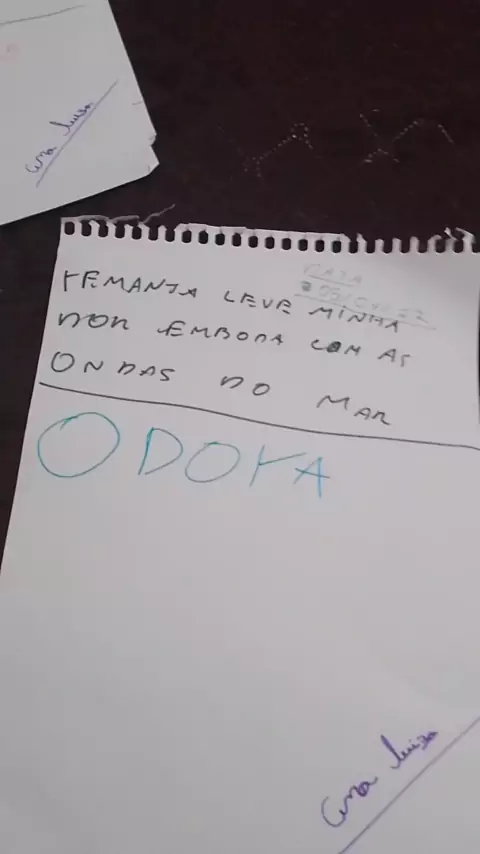 Ana Luiza
DATA
YEMANJA LEVE MINHA
DOR EMBORA COM AS
ONDAS DO MAR
ODOYA
Ana Luiza